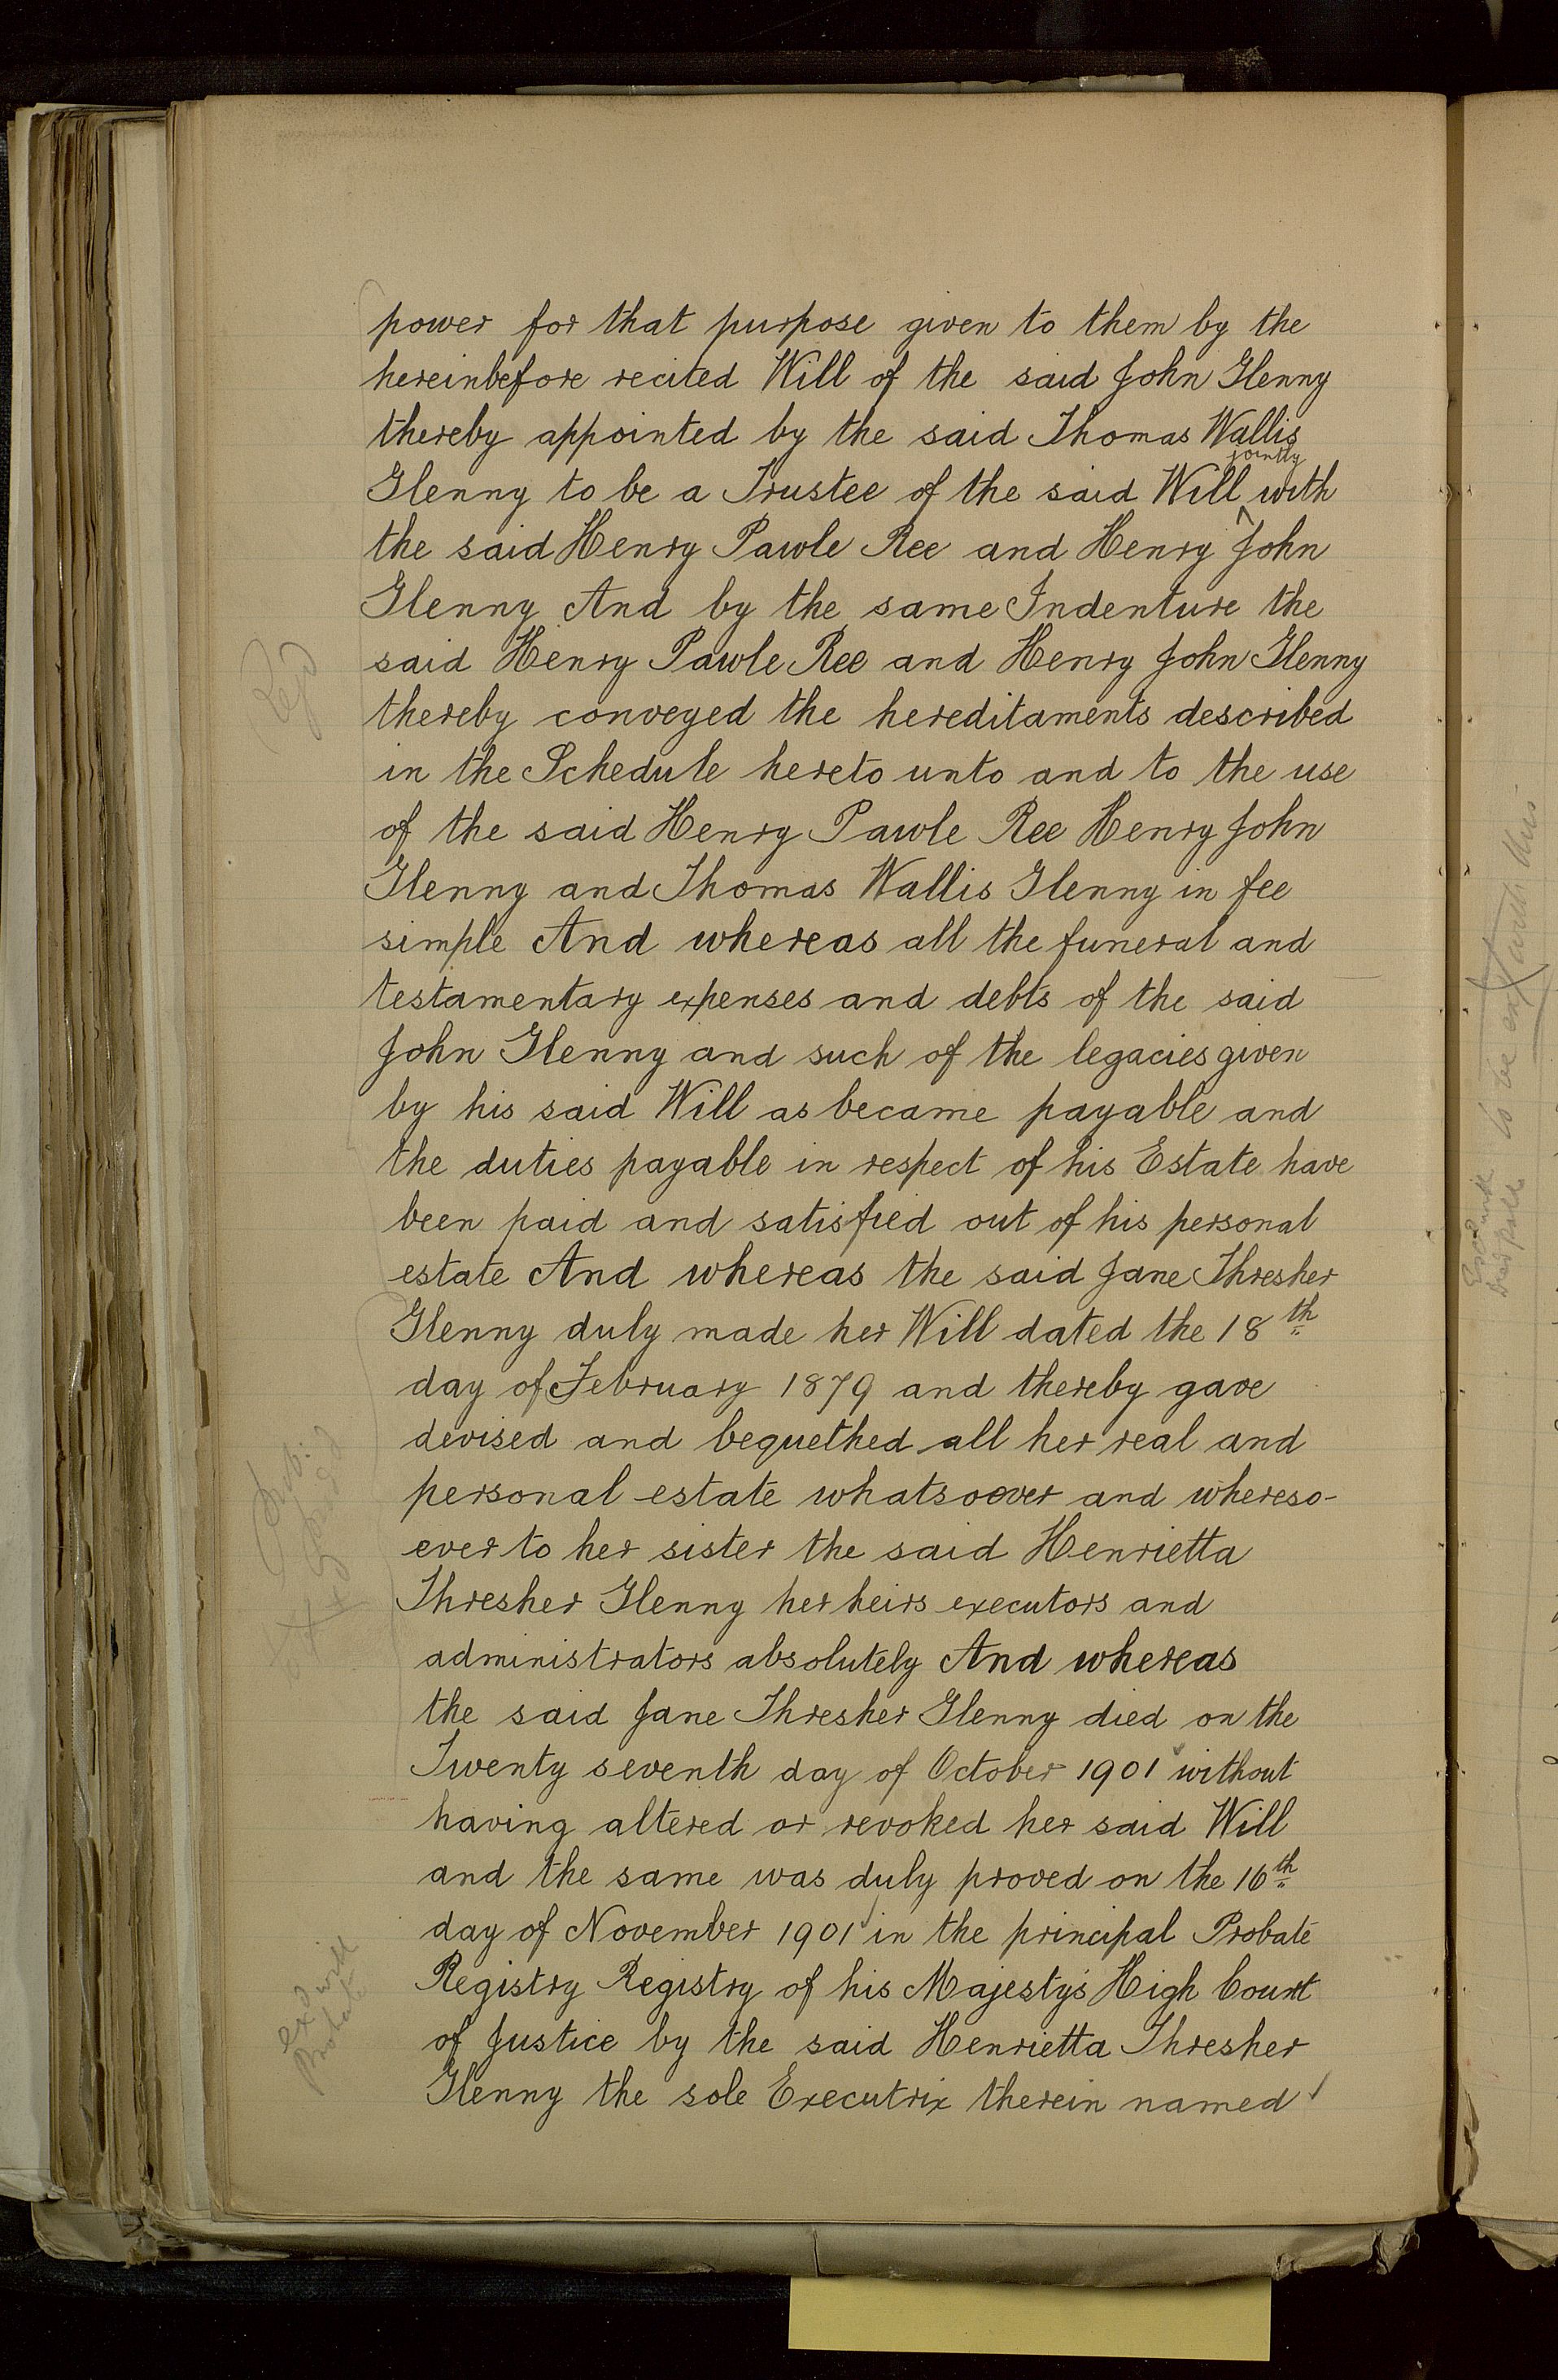 power for that purpose given to them by the
hereinbefore recited Will of the said John Glenny
thereby appointed by the said Thomas Wallis
jointly
Glenny to be a Trustee of the said Will ^ with
the said Henry Pawle Ree and Henry John
Glenny And by the same Indenture the
said Henry Pawle Ree and Henry John Glenny
thereby conveyed the hereditaments described
in the Schedule hereto unto and to the use
of the said Henry Pawle Ree Henry John
Glenny and Thomas Wallis Glenny in fee
simple And whereas all the funeral and
testamentary expenses and debts of the said
John Glenny and such of the legacies given
by his said Will as became payable and
the duties payable in respect of his Estate have
been paid and satisfied out of his personal
estate And whereas the said Jane Thresher
Glenny duly made her Will dated the 18th
day of February 1879 and thereby gave
devised and bequethed all her real and
personal estate whatsoever and whereso-
ever to her sister the said Henrietta
Thresher Glenny her heirs executors and
administrators absolutely And whereas
the said Jane Thresher Glenny died on the
Twenty seventh day of October 1901 without
having altered or revoked her said Will
and the same was duly proved on the 16th
day of November 1901 in the principal Probate
Registry Registry of his Majesty's High Court
of Justice by the said Henrietta Thresher
Glenny the sole Executrix therein named
exd with
Probate